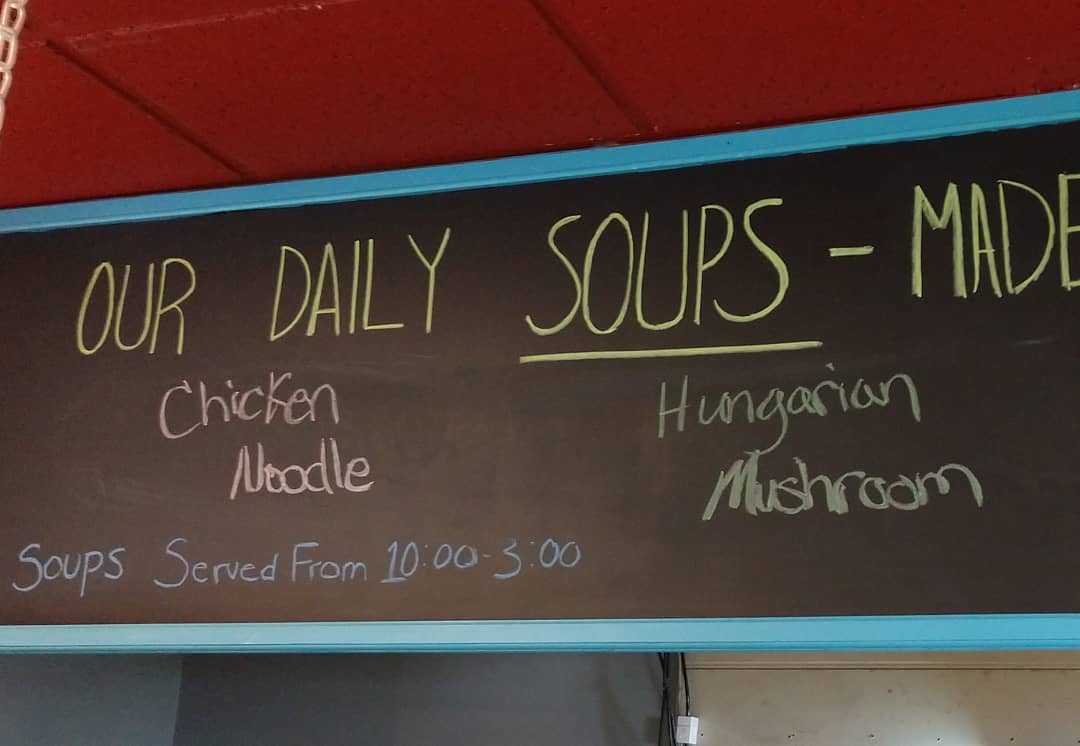 OUR DAILY SOUPS - MADE
Chicken Hungarian
Noodle Mushroom
Soups Served From 10:00-3:00